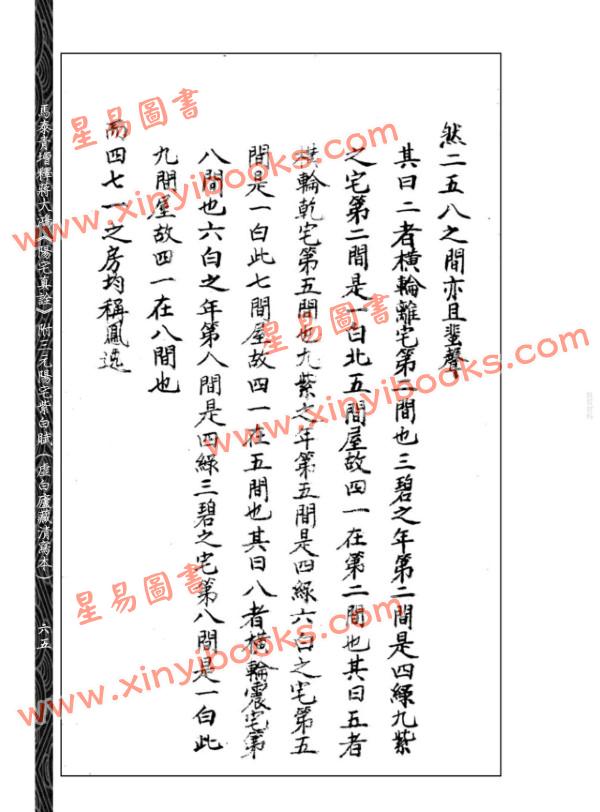 然二五八之間亦且蜚聲
其曰二者橫輪離宅第二間也三碧之年第二間是四綠九紫
之宅第二間是一白北五間屋故四一在第二間也其曰五者
橫輪乾宅第五間也九紫之年第五間是四綠六白之宅第五
間是一白此七間屋故四一在五間也其曰八者橫輪震宅第
八間也六白之年第八間是四綠三碧之宅第八間是一白此
九間屋故四一在八間也
而四七一之房均稱鳳選
馬泰青增釋蔣大鴻《陽宅真詮》附三元陽宅紫白賦（虛白廬藏清寫本）
六五
星易圖書
www.xinyibooks.com
星易圖書
www.xinyibooks.com
星易圖書
www.xinyibooks.com
星易圖書
www.xinyibooks.com